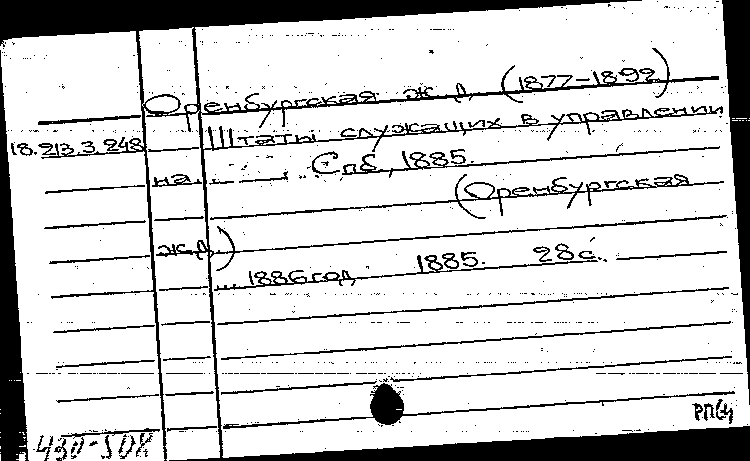 Оренбургская ж. д. (1877-1892)
18.213.3.248 Штаты служащих в управлении
на... Спб., 1885.
(Оренбургская
ж.д.)
... 1886 год 1885. 28 с.
430-508